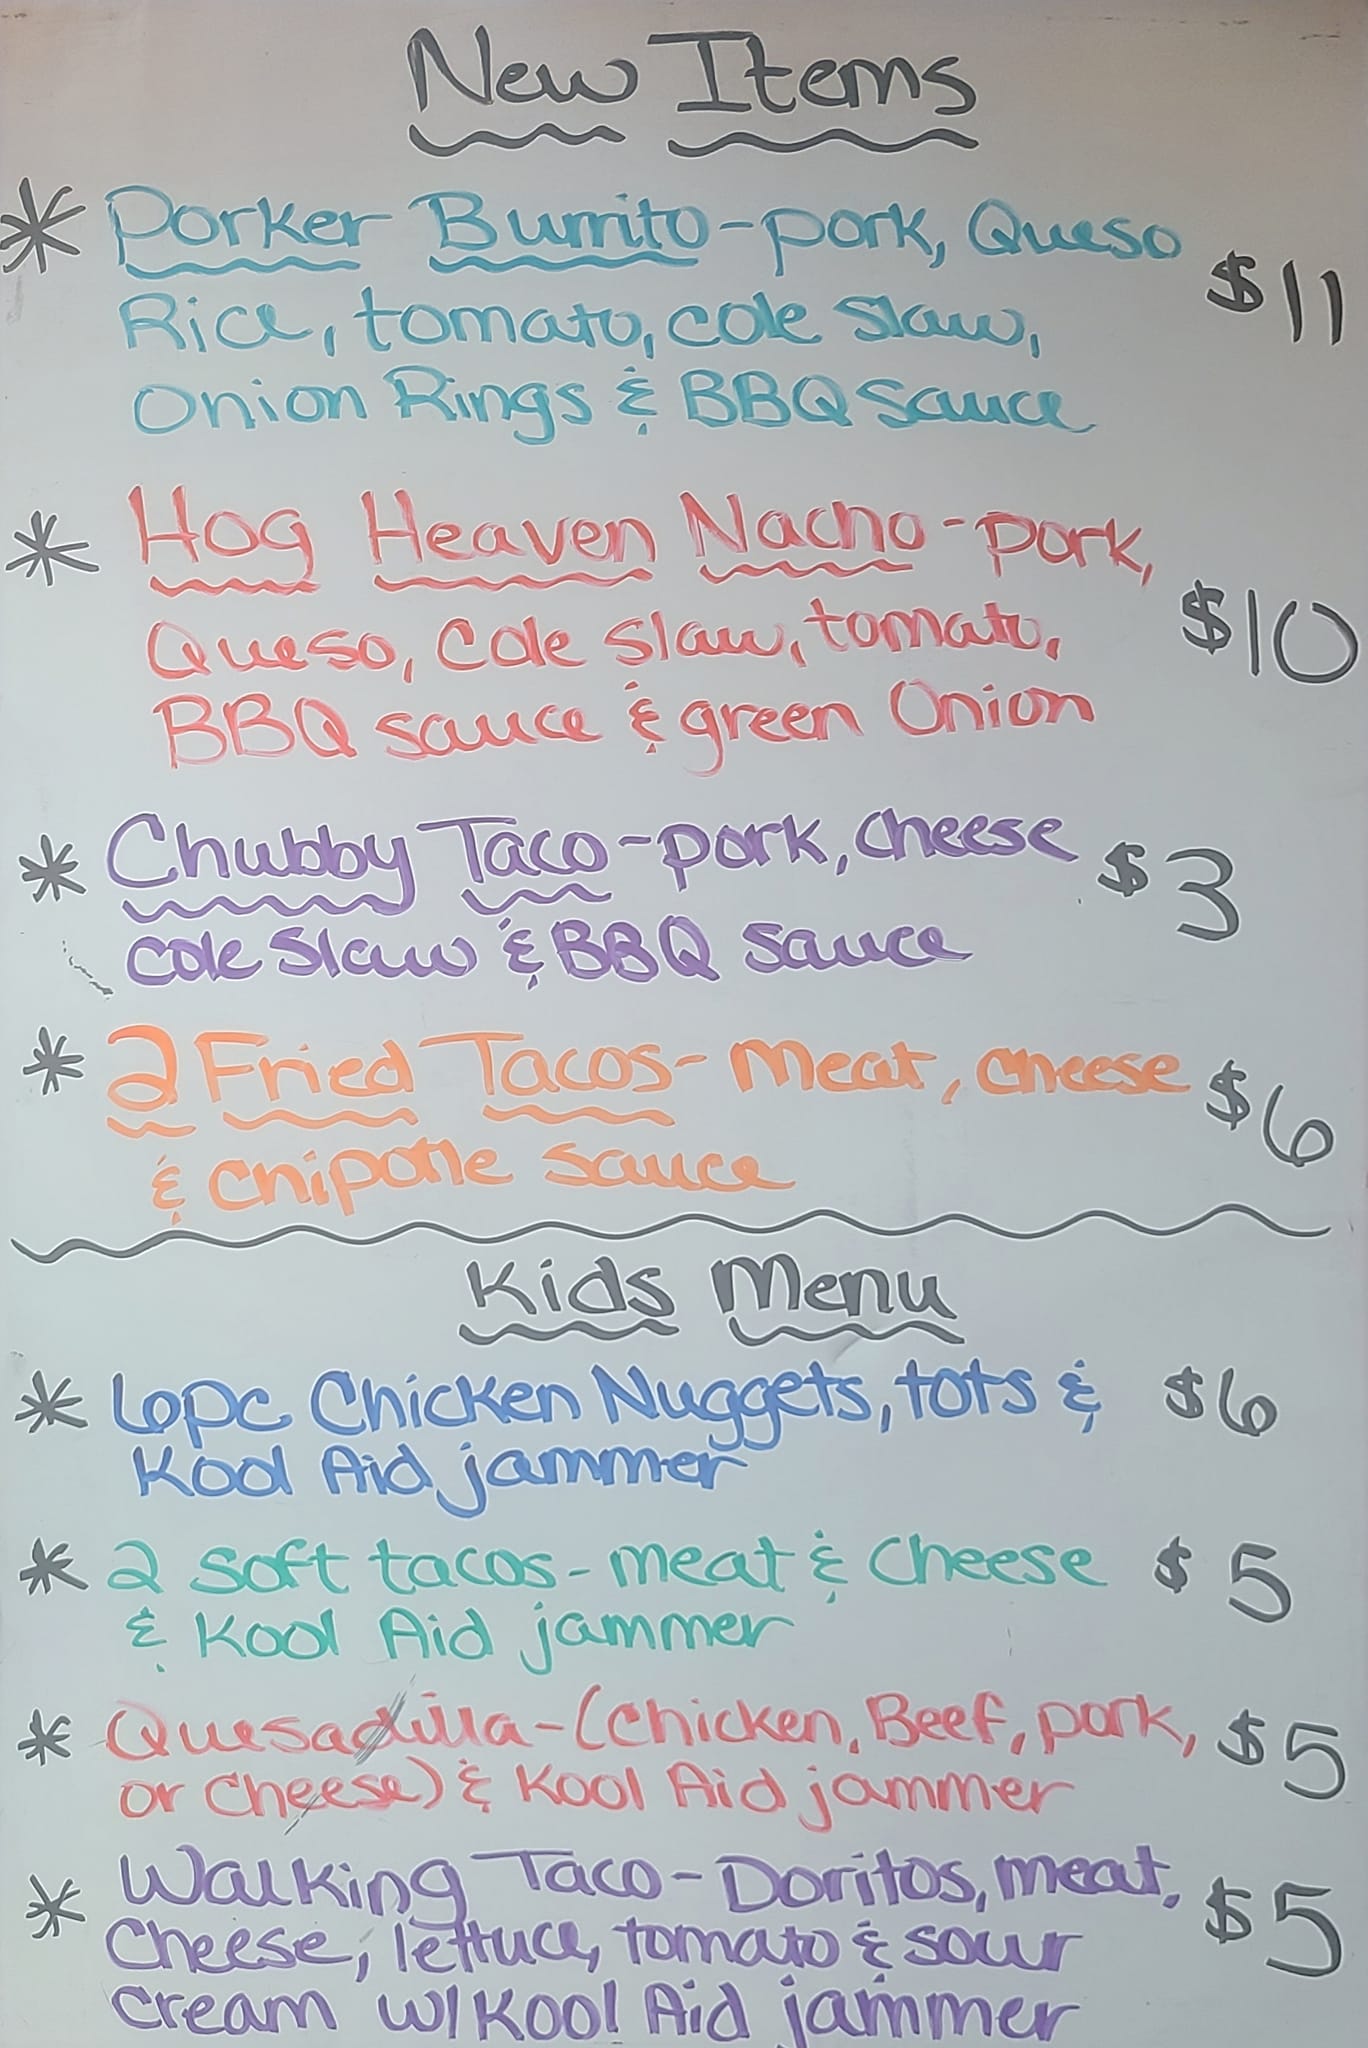 New Items
* Porker Burrito - pork, Queso $11
Rice, tomato, cole slaw,
Onion Rings & BBQ Sauce
* Hog Heaven Nacho - pork, $10
Queso, cole slaw, tomato,
BBQ sauce & green Onion
* Chubby Taco - pork, cheese $3
cole slaw & BBQ Sauce
* 2 Fried Tacos - Meat, cheese $6
& chipotle sauce
Kids Menu
* 6pc Chicken Nuggets, tots & $6
Kool Aid jammer
* 2 soft tacos - meat & cheese $5
& Kool Aid jammer
* Quesadilla - (chicken, Beef, pork, $5
or cheese) & Kool Aid jammer
* Walking Taco - Doritos, meat, $5
Cheese, lettuce, tomato & sour
cream w/ Kool Aid jammer